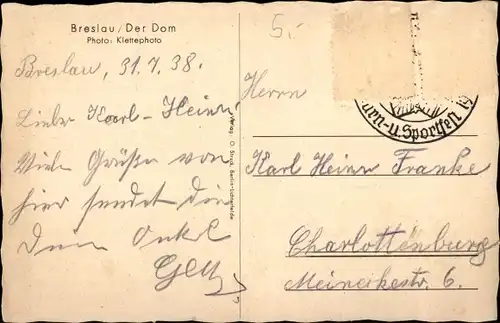 Breslau / Der Dom
Photo: Klettephoto
5.-
Breslau, 31.7.38.
Lieber Karl-Heinz!
Viele Grüße von
hier sendet dir
Dein Onkel
Verlag O. Struck, Berlin-Lichterfelde
Turn-u. Sportfest 19
Herrn
Karl Heinz Franke
Charlottenburg
Meinekestr. 6.